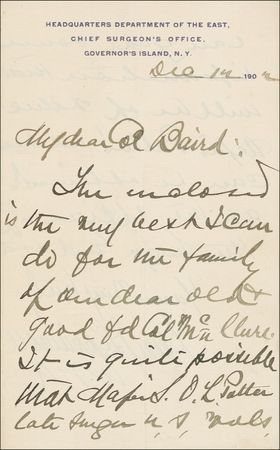 HEADQUARTERS DEPARTMENT OF THE EAST,
CHIEF SURGEON'S OFFICE,
GOVERNOR'S ISLAND, N. Y.
Dec 190
My dear Col Baird:
The enclosed
is the very best I can
do for the family
of our dear old &
good f'd Col Mc Clure.
It is quite possible
that Major S. O. L. Potter
late Surgn U. S. Vols,